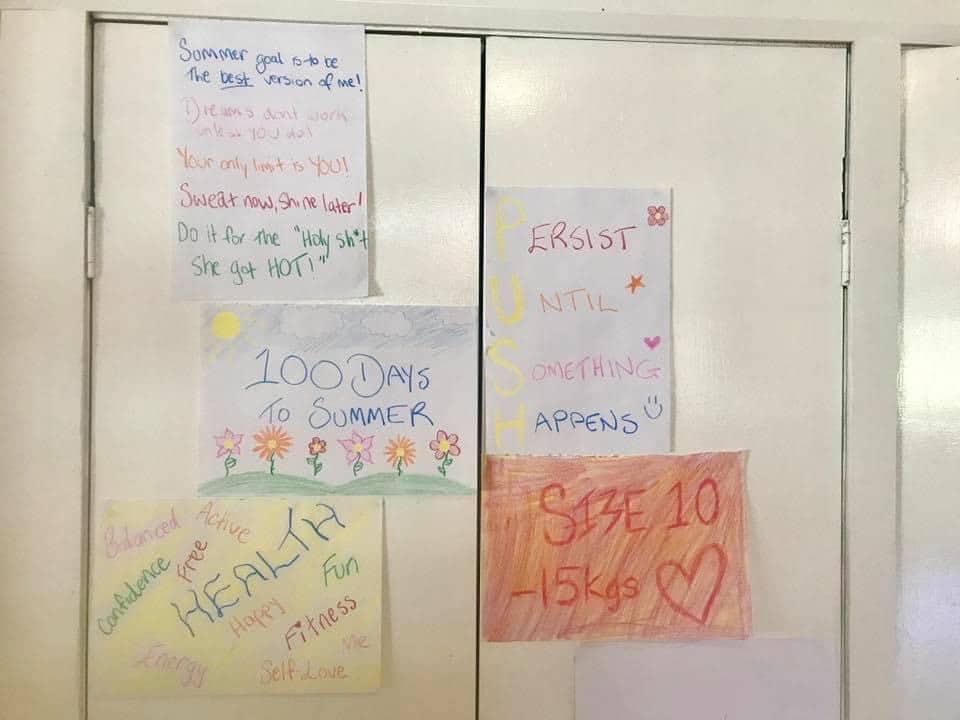 Summer goal is to be
the best version of me!
Dreams dont work
unless you do!
Your only limit is YOU!
Sweat now, Shine later!
Do it for the "Holy sh*t
She got HOT!"
PERSIST
UNTIL
SOMETHING
HAPPENS
100 DAYS
TO SUMMER
SIZE 10
-15kgs
Balanced
Active
Confidence
Free
HEALTH
Fun
Happy
Fitness
Me
Energy
Self-Love